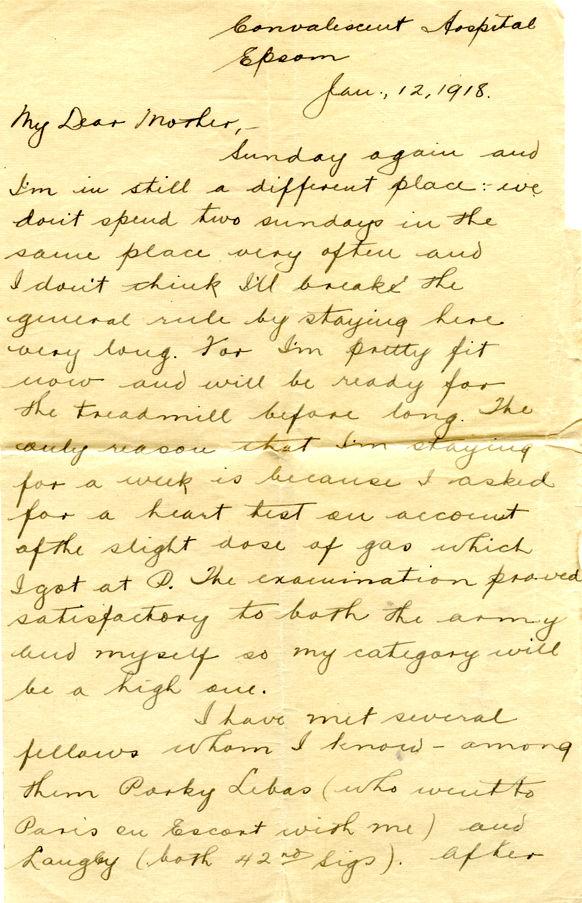 Convalescent Hospital
Epsom
Jan., 12, 1918.
My Dear Mother,-
Sunday again and
I'm in still a different place :- we
don't spend two sundays in the
same place very often and
I don't think I'll break the
general rule by staying here
very long. For I'm pretty fit
now and will be ready for
the treadmill before long. The
only reason that I'm staying
for a week is because I asked
for a heart test on account
of the slight dose of gas which
I got at P. The examination proved
satisfactory to both the army
and myself so my category will
be a high one.
I have met several
fellows whom I know - among
them Porky Lebas (who went to
Paris on Escort with me) and
Langley (both 42nd Sigs). After